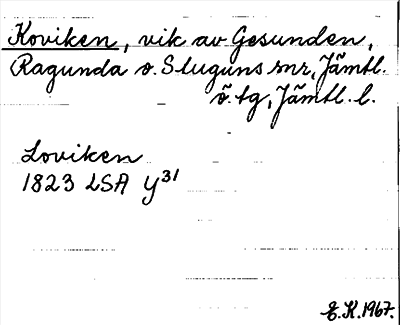 Koviken, vik av Gesunden,
Ragunda o. Stuguns snr, Jämtl.
ö. tg, Jämtl. l.
Loviken
1823 LSA Y³¹
E.K. 1967.